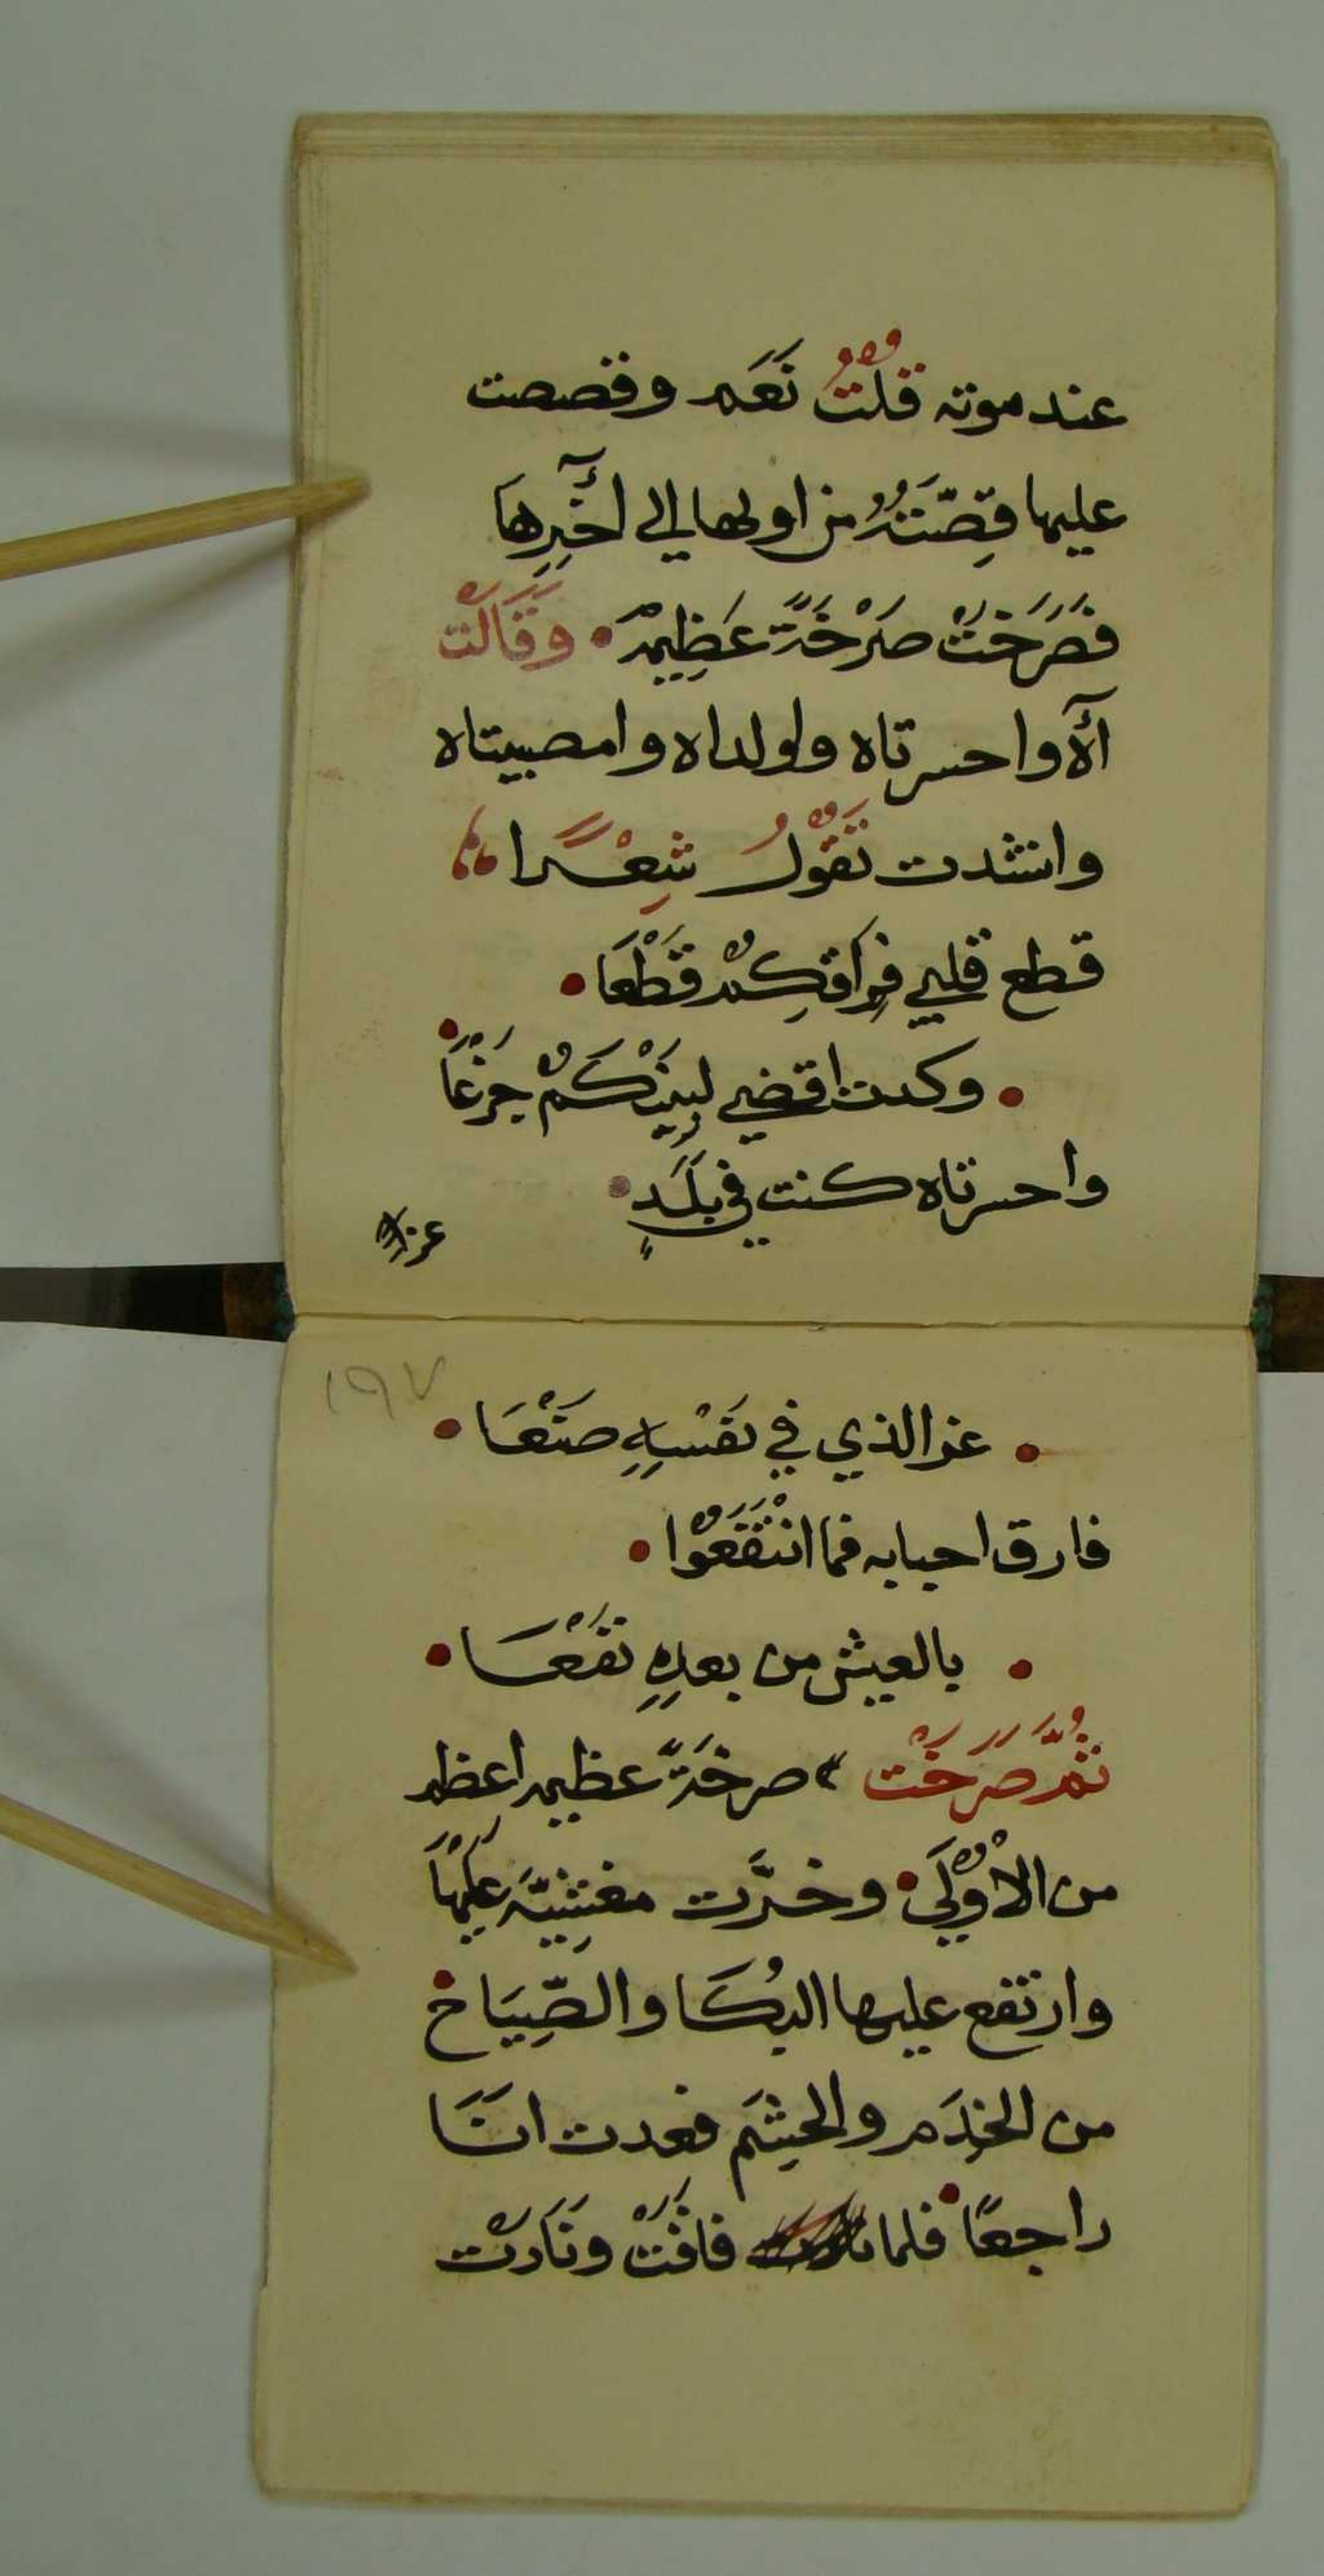 عند موته قُلْتُ نَعَم وقصصت
عليها قِصَّتَهُ من اولها الي أخِرِهَا
فَصَرَخَتْ صَرْخَةً عَظِيمَةْ • وَقَالَتْ
آه واحسرتاه واولداه وامصيبتاه
وانشدت تَقُوْلُ شِعْرًا
قطع قلبي فِرَاقكِمُ قَطْعَا •
• وكدت اقضي لِبَيْنِكُمْ جَزْعًا •
واحسرتاه كنت في بَلَدٍ •
عن
١٩٧
• عن الذي في نَفْسِهِ صَنْعَا •
فارق احبابه فما انْتَفَعُوْا •
• بالعيش من بعدِهِ نَفْعَا •
ثُمَّ صَرَخَتْ صرخَةً عظيمه اعظم
من الاُوْلَي • وخرَّت مغشِيَّه عَلَيْهَا
وارتفع عليها البُكَا والصِّيَاخ •
من الخدَم والحِشَم فعدت انَا
راجعًا • فلما فاقَتْ ونَادَتْ